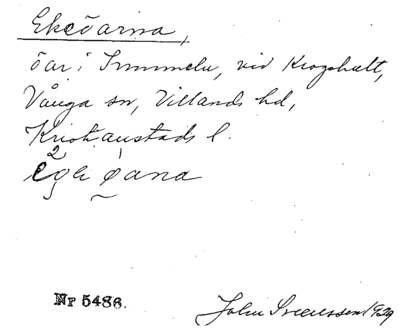 Ekeöarna,
öar i Immeln, vid Krogshult,
Vånga sn, Villands hd,
Kristianstads l.
Nr 5486.
John Svensson 1929